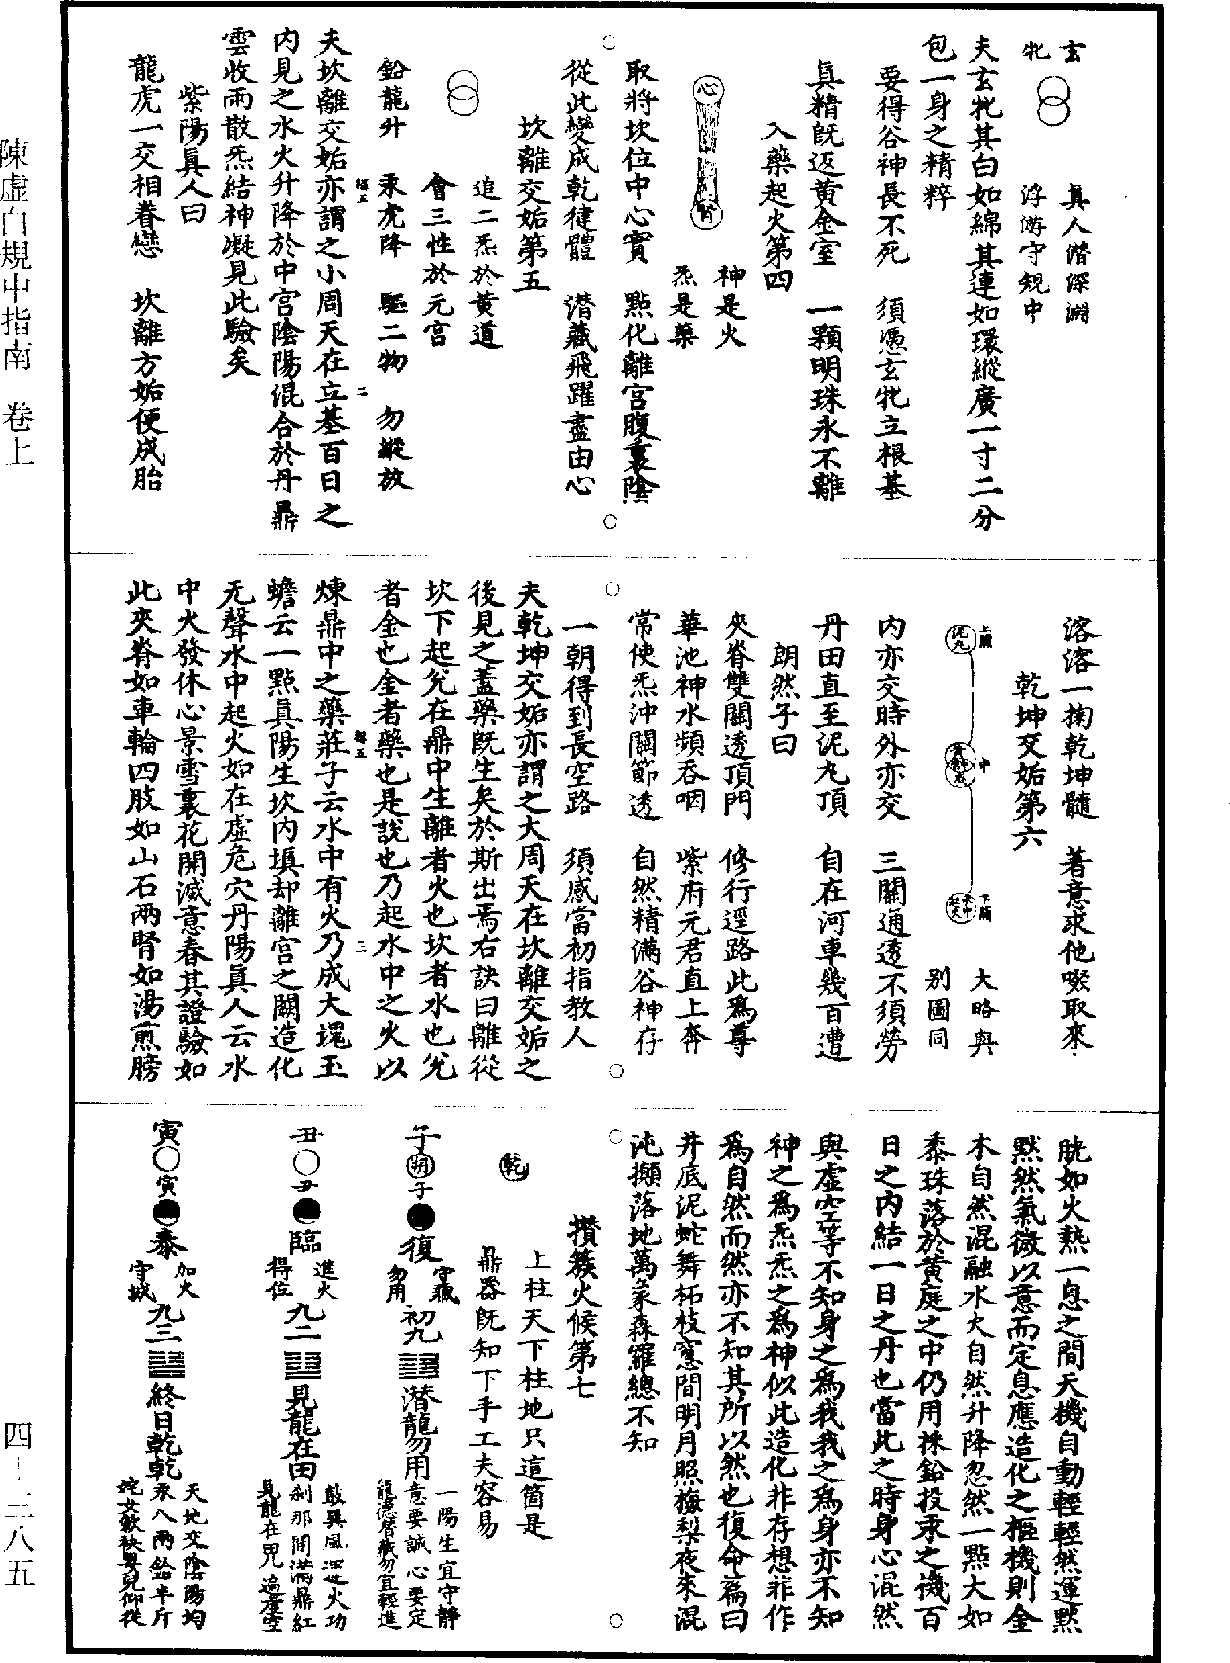 玄牝
真人潛深淵
浮游守規中
夫玄牝其白如綿其連如環縱廣一寸二分
包一身之精粹
要得谷神長不死　須憑玄牝立根基
真精既返黃金室　一顆明珠永不離
入藥起火第四
心
腎
神是火
炁是藥
取將坎位中心實　點化離宮腹裏陰
從此變成乾健體　潛藏飛躍盡由心
坎離交姤第五
追二炁於黃道
會三性於元宮
鉛龍升　汞虎降　驅二物　勿縱放
夫坎離交姤亦謂之小周天在立基百日之
內見之水火升降於中宮陰陽混合於丹鼎
雲收雨散炁結神凝見此驗矣
紫陽真人曰
龍虎一交相眷戀　坎離方姤便成胎
溶溶一掬乾坤髓　著意求他啜取來
乾坤交姤第六
上關
泥丸
中
下關
大略與
別圖同
內亦交時外亦交　三關通透不須勞
丹田直至泥丸頂　自在河車幾百遭
朗然子曰
夾脊雙關透頂門　修行逕路此為尊
華池神水頻吞咽　紫府元君直上奔
常使炁沖關節透　自然精滿谷神存
一朝得到長空路　須感當初指教人
夫乾坤交姤亦謂之大周天在坎離交姤之
後見之蓋藥既生矣於斯出焉右訣曰離從
坎下起兊在鼎中生離者火也坎者水也兊
者金也金者藥也是說也乃起水中之火以
煉鼎中之藥莊子云水中有火乃成大塊玉
蟾云一點真陽生坎內填却離宮之闕造化
无聲水中起火如在虛危穴丹陽真人云水
中火發休心景雪裏花開滅意春其證驗如
此夾脊如車輪四肢如山石兩腎如湯煎膀
胱如火熱一息之間天機自動輕輕然運默
默然氣微以意而定息應造化之樞機則金
木自然混融水火自然升降忽然一點大如
黍珠落於黃庭之中仍用採鉛投汞之機百
日之內結一日之丹也當此之時身心混然
與虛空等不知身之為我我之為身亦不知
神之為炁炁之為神似此造化非存想非作
為自然而然亦不知其所以然也復命篇曰
井底泥蛇舞柘枝窓間明月照梅梨夜來混
沌攧落地萬象森羅總不知
攢簇火候第七
上柱天下柱地只這箇是
鼎器既知下手工夫容易
乾
子朔子復　守藏勿用　初九　潛龍勿用　一陽生宜守靜意要誠心要定龍德替藏勿宜輕進
丑丑臨　進火得位　九二　見龍在田　鼓巽風運火功剎那間滿鼎紅
寅寅泰　加火守城　九三　終日乾乾　天地交陰陽均汞八兩鉛半斤
陳虛白規中指南　卷上
四–三八五